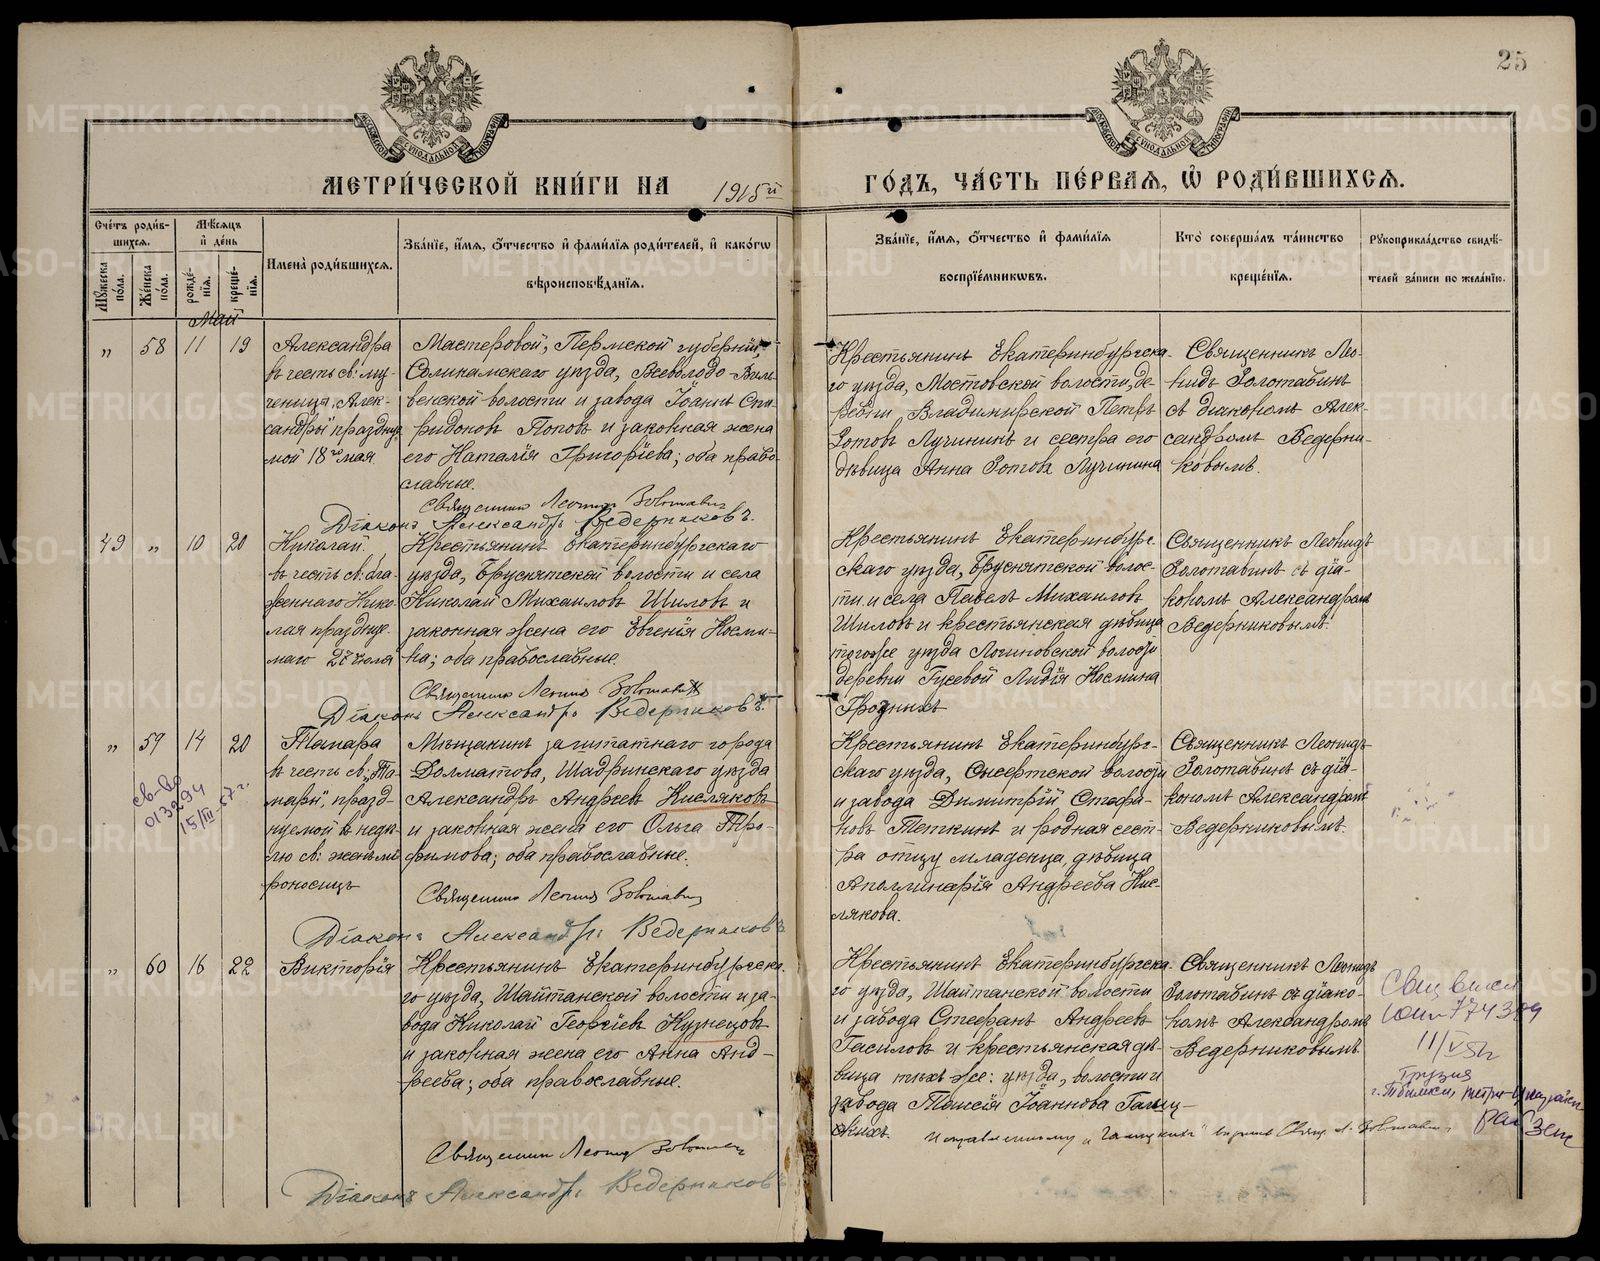 25
МОСКОВСКОЙ СѴНОДАЛЬНОЙ ТИПОГРАФІИ
МОСКОВСКОЙ СѴНОДАЛЬНОЙ ТИПОГРАФІИ
МЕТРИ́ЧЕСКОЙ КНИ́ГИ НА 1915й
ГО́ДЪ, ЧА́СТЬ ПЕ́РВАЯ, Ѡ РОДИ́ВШИХСЯ.
Сче́тъ роди́в-
шихся.
Мѣ́сяцъ
и́ де́нь
Мꙋ́жеска по́ла.
Же́нска по́ла.
рожде́-
нїя.
креще́-
нїя.
Имена̀ роди́вшихся.
Зва́нїе, и́мя, о́тчество и́ фами́лїя роди́телей, и́ како́гѡ
вѣроисповѣ́данїя.
Зва́нїе, и́мя, о́тчество и́ фами́лїя
воспрїе́мникѡвъ.
Кто̀ соверша́лъ та́инство
креще́нїя.
Рꙋкоприкла́дство свидѣ́-
телей за́писи по жела́нїю.
Май
" 58 11 19
Александра
въ честь св: му-
ченица Алек-
сандры праздну
мой 18го мая.
Мастеровой, Пермской губерніи,
Соликамскаго уѣзда, Всеволодо-Виль-
венской волости и завода Іоаннъ Спи-
ридоновъ Поповъ и законная жена
его Наталія Григоріева; оба право-
славные.
Священникъ Леонидъ Золотавинъ
Діаконъ Александръ Ведерниковъ.
Крестьянинъ Екатеринбургска-
го уѣзда, Мостовской волости, де-
ревни Владимирской Петръ
Зотовъ Лучининъ и сестра его
дѣвица Анна Зотова Лучинина
Священникъ Лео-
нидъ Золотавинъ
съ діакономъ Алек-
сандромъ Ведерни-
ковымъ.
49 " 10 20
Николай.
въ честь св: бла-
женнаго Нико-
лая празднуе-
маго 27 іюля
Крестьянинъ Екатеринбургскаго
уѣзда, Бруснятской волости и села
Николай Михаиловъ Шиловъ и
законная жена его Евгенія Косми-
на; оба православные.
Священникъ Леонидъ Золотавинъ
Діаконъ Александръ Ведерниковъ.
Крестьянинъ Екатеринбург-
скаго уѣзда, Бруснятской волос-
ти и села Павелъ Михаиловъ
Шиловъ и крестьянская дѣвица
того-же уѣзда Логиновской волости
деревни Гусевой Лидія Космина
Гродныхъ
Священникъ Леонидъ
Золотавинъ съ діа-
кономъ Александромъ
Ведерниковымъ.
" 59 14 20
св-во
013294
15/III 67 г.
Тамара
въ честь св: Та-
мары, празд-
нуемой въ недѣ-
лю св: женъ ми
роносицъ
Мѣщанинъ заштатнаго города
Долматова, Шадринскаго уѣзда
Александръ Андреевъ Кисляковъ
и законная жена его Ольга Тро-
фимова; оба православные.
Священникъ Леонидъ Золотавинъ
Діаконъ Александръ Ведерниковъ
Крестьянинъ Екатеринбург-
скаго уѣзда, Сысертской волости
и завода Димитрій Стефа-
новъ Теткинъ и родная сест-
ра отцу младенца, дѣвица
Аполлинарія Андреева Кис-
лякова.
Священникъ Леонидъ
Золотавинъ съ діа-
кономъ Александромъ
Ведерниковымъ.
" 60 16 22
Викторія
Крестьянинъ Екатеринбургска-
го уѣзда, Шайтанской волости и за-
вода Николай Георгіевъ Кузнецовъ
и законная жена его Анна Анд-
реева; оба православные.
Священникъ Леонидъ Золотавинъ
Діаконъ Александръ Ведерниковъ
Крестьянинъ Екатеринбургска-
го уѣзда, Шайтанской волости
и завода Стефанъ Андреевъ
Гасиловъ и крестьянская дѣ-
вица тѣхъ-же: уѣзда, волости и
завода Таисія Іоаннова Галиц-
кихъ.
Священникъ Леонидъ
Золотавинъ съ діако-
номъ Александромъ
Ведерниковымъ
774309
Грузия
г. Тбилиси,
METRIKI.GASO-URAL.RU